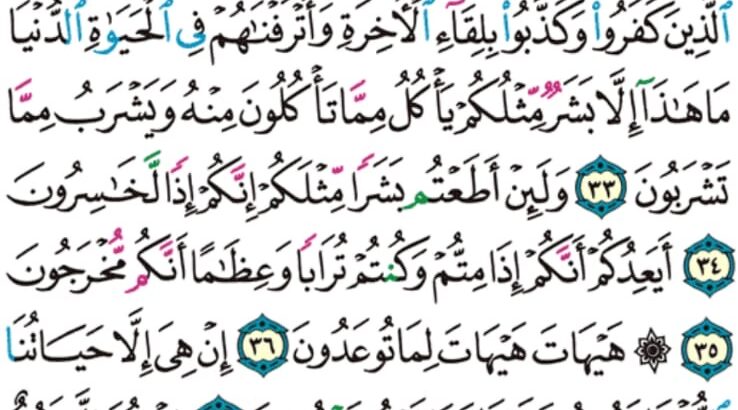 ٱلَّذِينَ كَفَرُوا۟ وَكَذَّبُوا۟ بِلِقَآءِ ٱلْأَخِرَةِ وَأَتْرَفْنَٰهُمْ فِى ٱلْحَيَوٰةِ ٱلدُّنْيَا
مَا هَٰذَآ إِلَّا بَشَرٌ مِّثْلُكُمْ يَأْكُلُ مِمَّا تَأْكُلُونَ مِنْهُ وَيَشْرَبُ مِمَّا
تَشْرَبُونَ ٣٣ وَلَئِنْ أَطَعْتُم بَشَرًا مِّثْلَكُمْ إِنَّكُمْ إِذًا لَّخَٰسِرُونَ
٣٤ أَيَعِدُكُمْ أَنَّكُمْ إِذَا مِتُّمْ وَكُنتُمْ تُرَابًا وَعِظَٰمًا أَنَّكُم مُّخْرَجُونَ
٣٥ ۞ هَيْهَاتَ هَيْهَاتَ لِمَا تُوعَدُونَ ٣٦ إِنْ هِىَ إِلَّا حَيَاتُنَا